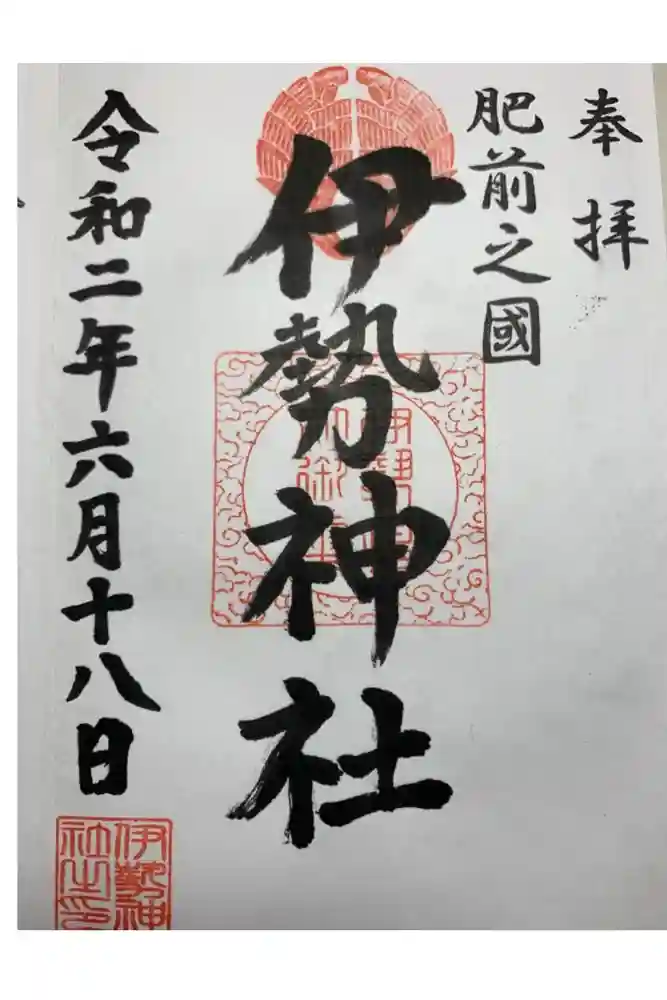 奉拝
肥前之國
伊勢神社
令和二年六月十八日
伊勢神
社之印